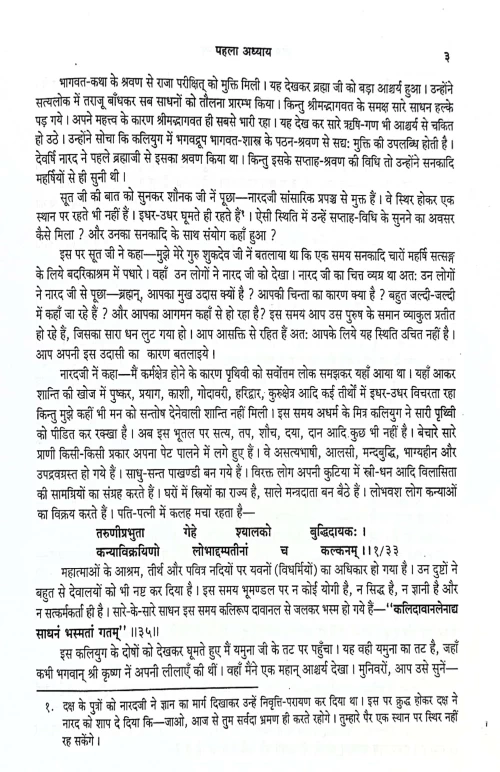 पहला अध्याय ३
भागवत-कथा के श्रवण से राजा परीक्षित् को मुक्ति मिली । यह देखकर ब्रह्मा जी को बड़ा आश्चर्य हुआ । उन्होंने
सत्यलोक में तराजू बाँधकर सब साधनों को तौलना प्रारम्भ किया । किन्तु श्रीमद्भागवत के समक्ष सारे साधन हल्के
पड़ गये । अपने महत्त्व के कारण श्रीमद्भागवत ही सबसे भारी रहा । यह देख कर सारे ऋषि-गण भी आश्चर्य से चकित
हो उठे । उन्होंने सोचा कि कलियुग में भगवद्रूप भागवत-शास्त्र के पठन-श्रवण से सद्य: मुक्ति की उपलब्धि होती है ।
देवर्षि नारद ने पहले ब्रह्माजी से इसका श्रवण किया था । किन्तु इसके सप्ताह-श्रवण की विधि तो उन्होंने सनकादि
महर्षियों से ही सुनी थी ।
सूत जी की बात को सुनकर शौनक जी नें पूछा—नारदजी सांसारिक प्रपञ्च से मुक्त हैं । वे स्थिर होकर एक
स्थान पर रहते भी नहीं हैं । इधर-उधर घूमते ही रहते हैं¹ । ऐसी स्थिति में उन्हें सप्ताह-विधि के सुनने का अवसर
कैसे मिला ? और उनका सनकादि के साथ संयोग कहाँ हुआ ?
इस पर सूत जी ने कहा—मुझे मेरे गुरु शुकदेव जी नें बतलाया था कि एक समय सनकादि चारों महर्षि सत्सङ्ग
के लिये बदरिकाश्रम में पधारे । वहाँ उन लोगों ने नारद जी को देखा । नारद जी का चित्त व्यग्र था अत: उन लोगों
ने नारद जी से पूछा—ब्रह्मन्, आपका मुख उदास क्यों है ? आपकी चिन्ता का कारण क्या है ? बहुत जल्दी-जल्दी
में कहाँ जा रहे हैं ? और आपका आगमन कहाँ से हो रहा है? इस समय आप उस पुरुष के समान व्याकुल प्रतीत
हो रहे हैं, जिसका सारा धन लुट गया हो । आप आसक्ति से रहित हैं अत: आपके लिये यह स्थिति उचित नहीं है ।
आप अपनी इस उदासी का कारण बतलाइये ।
नारदजी नें कहा—मैं कर्मक्षेत्र होने के कारण पृथिवी को सर्वोत्तम लोक समझकर यहाँ आया था । यहाँ आकर
शान्ति की खोज में पुष्कर, प्रयाग, काशी, गोदावरी, हरिद्वार, कुरुक्षेत्र आदि कई तीर्थों में इधर-उधर विचरता रहा
किन्तु मुझे कहीं भी मन को सन्तोष देनेवाली शान्ति नहीं मिली । इस समय अधर्म के मित्र कलियुग ने सारी पृथ्विी
को पीडित कर रक्खा है । अब इस भूतल पर सत्य, तप, शौच, दया, दान आदि कुछ भी नहीं है । बेचारे सारे
प्राणी किसी-किसी प्रकार अपना पेट पालने में लगे हुए हैं । वे असत्यभाषी, आलसी, मन्दबुद्धि, भाग्यहीन और
उपद्रवग्रस्त हो गये हैं । साधु-सन्त पाखण्डी बन गये हैं । विरक्त लोग अपनी कुटिया में स्त्री-धन आदि विलासिता
की सामग्रियों का संग्रह करते हैं । घरों में स्त्रियों का राज्य है, साले मन्त्रदाता बन बैठे हैं । लोभवश लोग कन्याओं
का विक्रय करते हैं । पति-पत्नी में कलह मचा रहता है—
तरुणीप्रभुता गेहे श्यालको बुद्धिदायकः ।
कन्याविक्रयिणो लोभाद्दम्पतीनां च कल्कनम् ।।१/३३
महात्माओं के आश्रम, तीर्थ और पवित्र नदियों पर यवनों (विधर्मियों) का अधिकार हो गया है । उन दुष्टों ने
बहुत से देवालयों को भी नष्ट कर दिया है । इस समय भूमण्डल पर न कोई योगी है, न सिद्ध है, न ज्ञानी है और
न सत्कर्मकर्ता ही है । सारे-के-सारे साधन इस समय कलिरूप दावानल से जलकर भस्म हो गये हैं—“कलिदावानलेनाद्य
साधनं भस्मतां गतम्” ।।३५।।
इस कलियुग के दोषों को देखकर घूमते हुए मैं यमुना जी के तट पर पहुँचा । यह वही यमुना का तट है, जहाँ
कभी भगवान् श्री कृष्ण नें अपनी लीलाएँ की थीं । वहाँ मैंने एक महान् आश्चर्य देखा । मुनिवरों, आप उसे सुनें—
१. दक्ष के पुत्रों को नारदजी ने ज्ञान का मार्ग दिखाकर उन्हें निवृत्ति-परायण कर दिया था । इस पर क्रुद्ध होकर दक्ष ने
नारद को शाप दे दिया कि—जाओ, आज से तुम सर्वदा भ्रमण ही करते रहोगे । तुम्हारे पैर एक स्थान पर स्थिर नहीं
रह सकेंगे ।